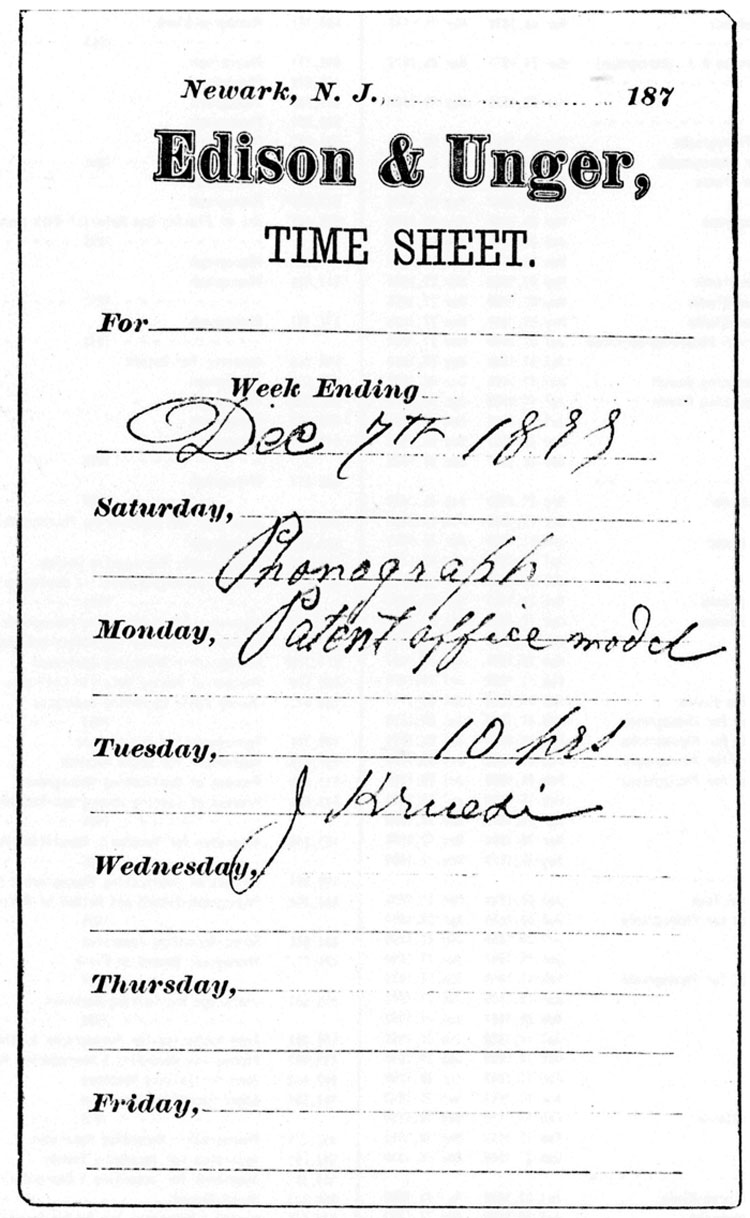 Newark, N. J., 187
Edison & Unger,
TIME SHEET.
For
Week Ending
Dec 7th
Saturday,
Phonograph
Monday, Patent office model
Tuesday, 10 hrs
J Kruesi
Wednesday,
Thursday,
Friday,